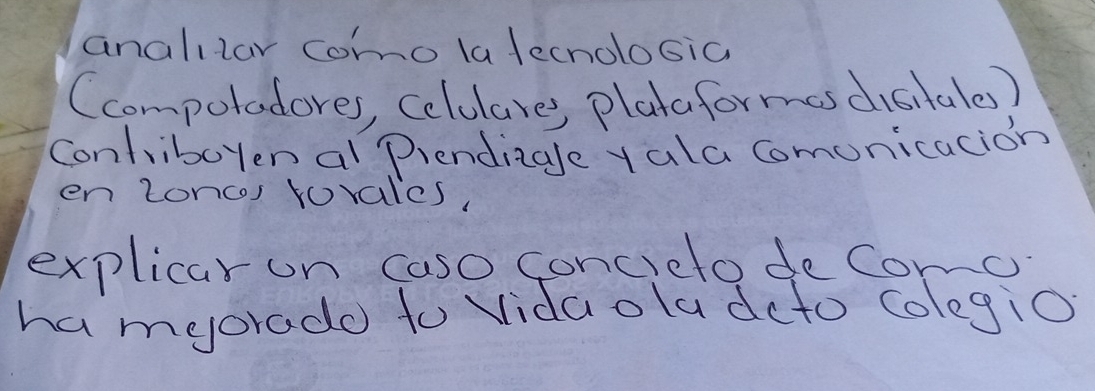 analizar cómo la tecnologia
(computadores, celulares, plataformas digitales)
contribuyen al Prendizaje y ala comunicación
en zonas rurales.
explicar un caso concreto de como
ha mejorado tu vida o la de tu colegio.